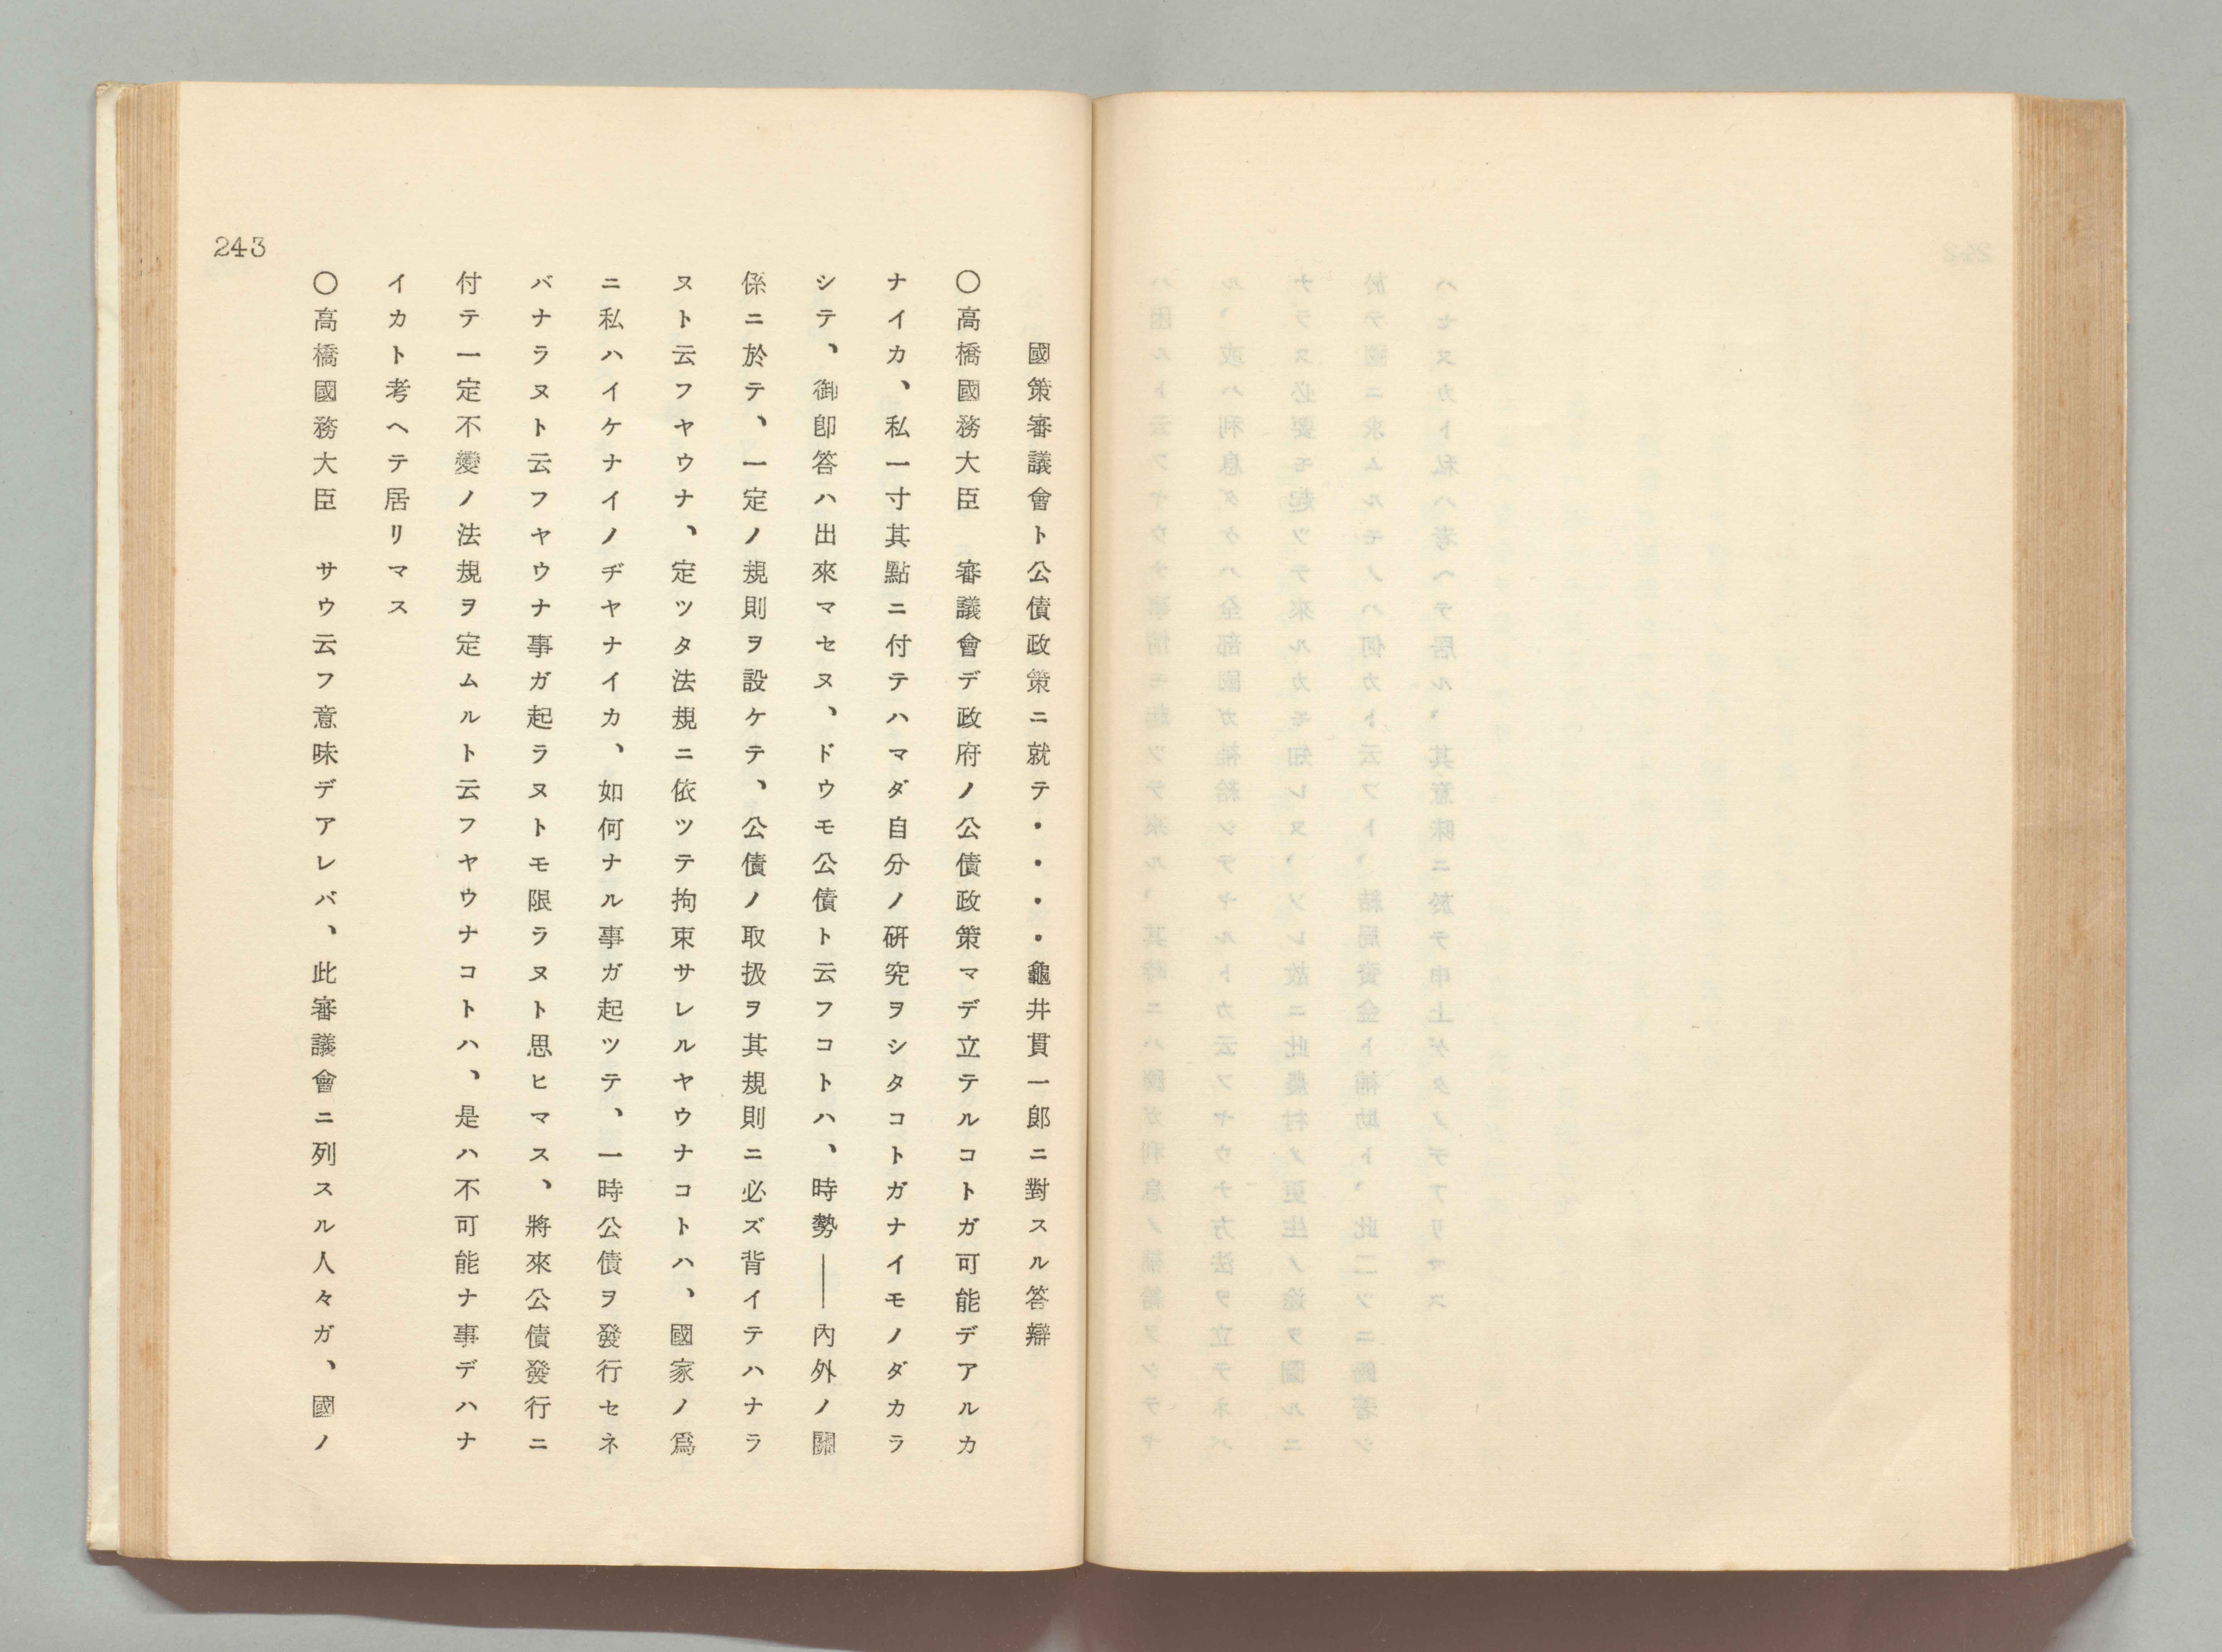 國策審議會ト公債政策ニ就テ・・・・龜井貫一郎ニ對スル答辯
〇高橋國務大臣　審議會デ政府ノ公債政策マデ立テルコトガ可能デアルカ
ナイカ、私一寸其點ニ付テハマダ自分ノ硏究ヲシタコトガナイモノダカラ
シテ、御卽答ハ出來マセヌ、ドウモ公債ト云フコトハ、時勢――內外ノ關
係ニ於テ、一定ノ規則ヲ設ケテ、公債ノ取扱ヲ其規則ニ必ズ背イテハナラ
ヌト云フヤウナ、定ツタ法規ニ依ツテ拘束サレルヤウナコトハ、國家ノ爲
ニ私ハイケナイノヂヤナイカ、如何ナル事ガ起ツテ、一時公債ヲ發行セネ
バナラヌト云フヤウナ事ガ起ラヌトモ限ラヌト思ヒマス、將來公債發行ニ
付テ一定不變ノ法規ヲ定ムルト云フヤウナコトハ、是ハ不可能ナ事デハナ
イカト考ヘテ居リマス
〇高橋國務大臣　サウ云フ意味デアレバ、此審議會ニ列スル人々ガ、國ノ
243